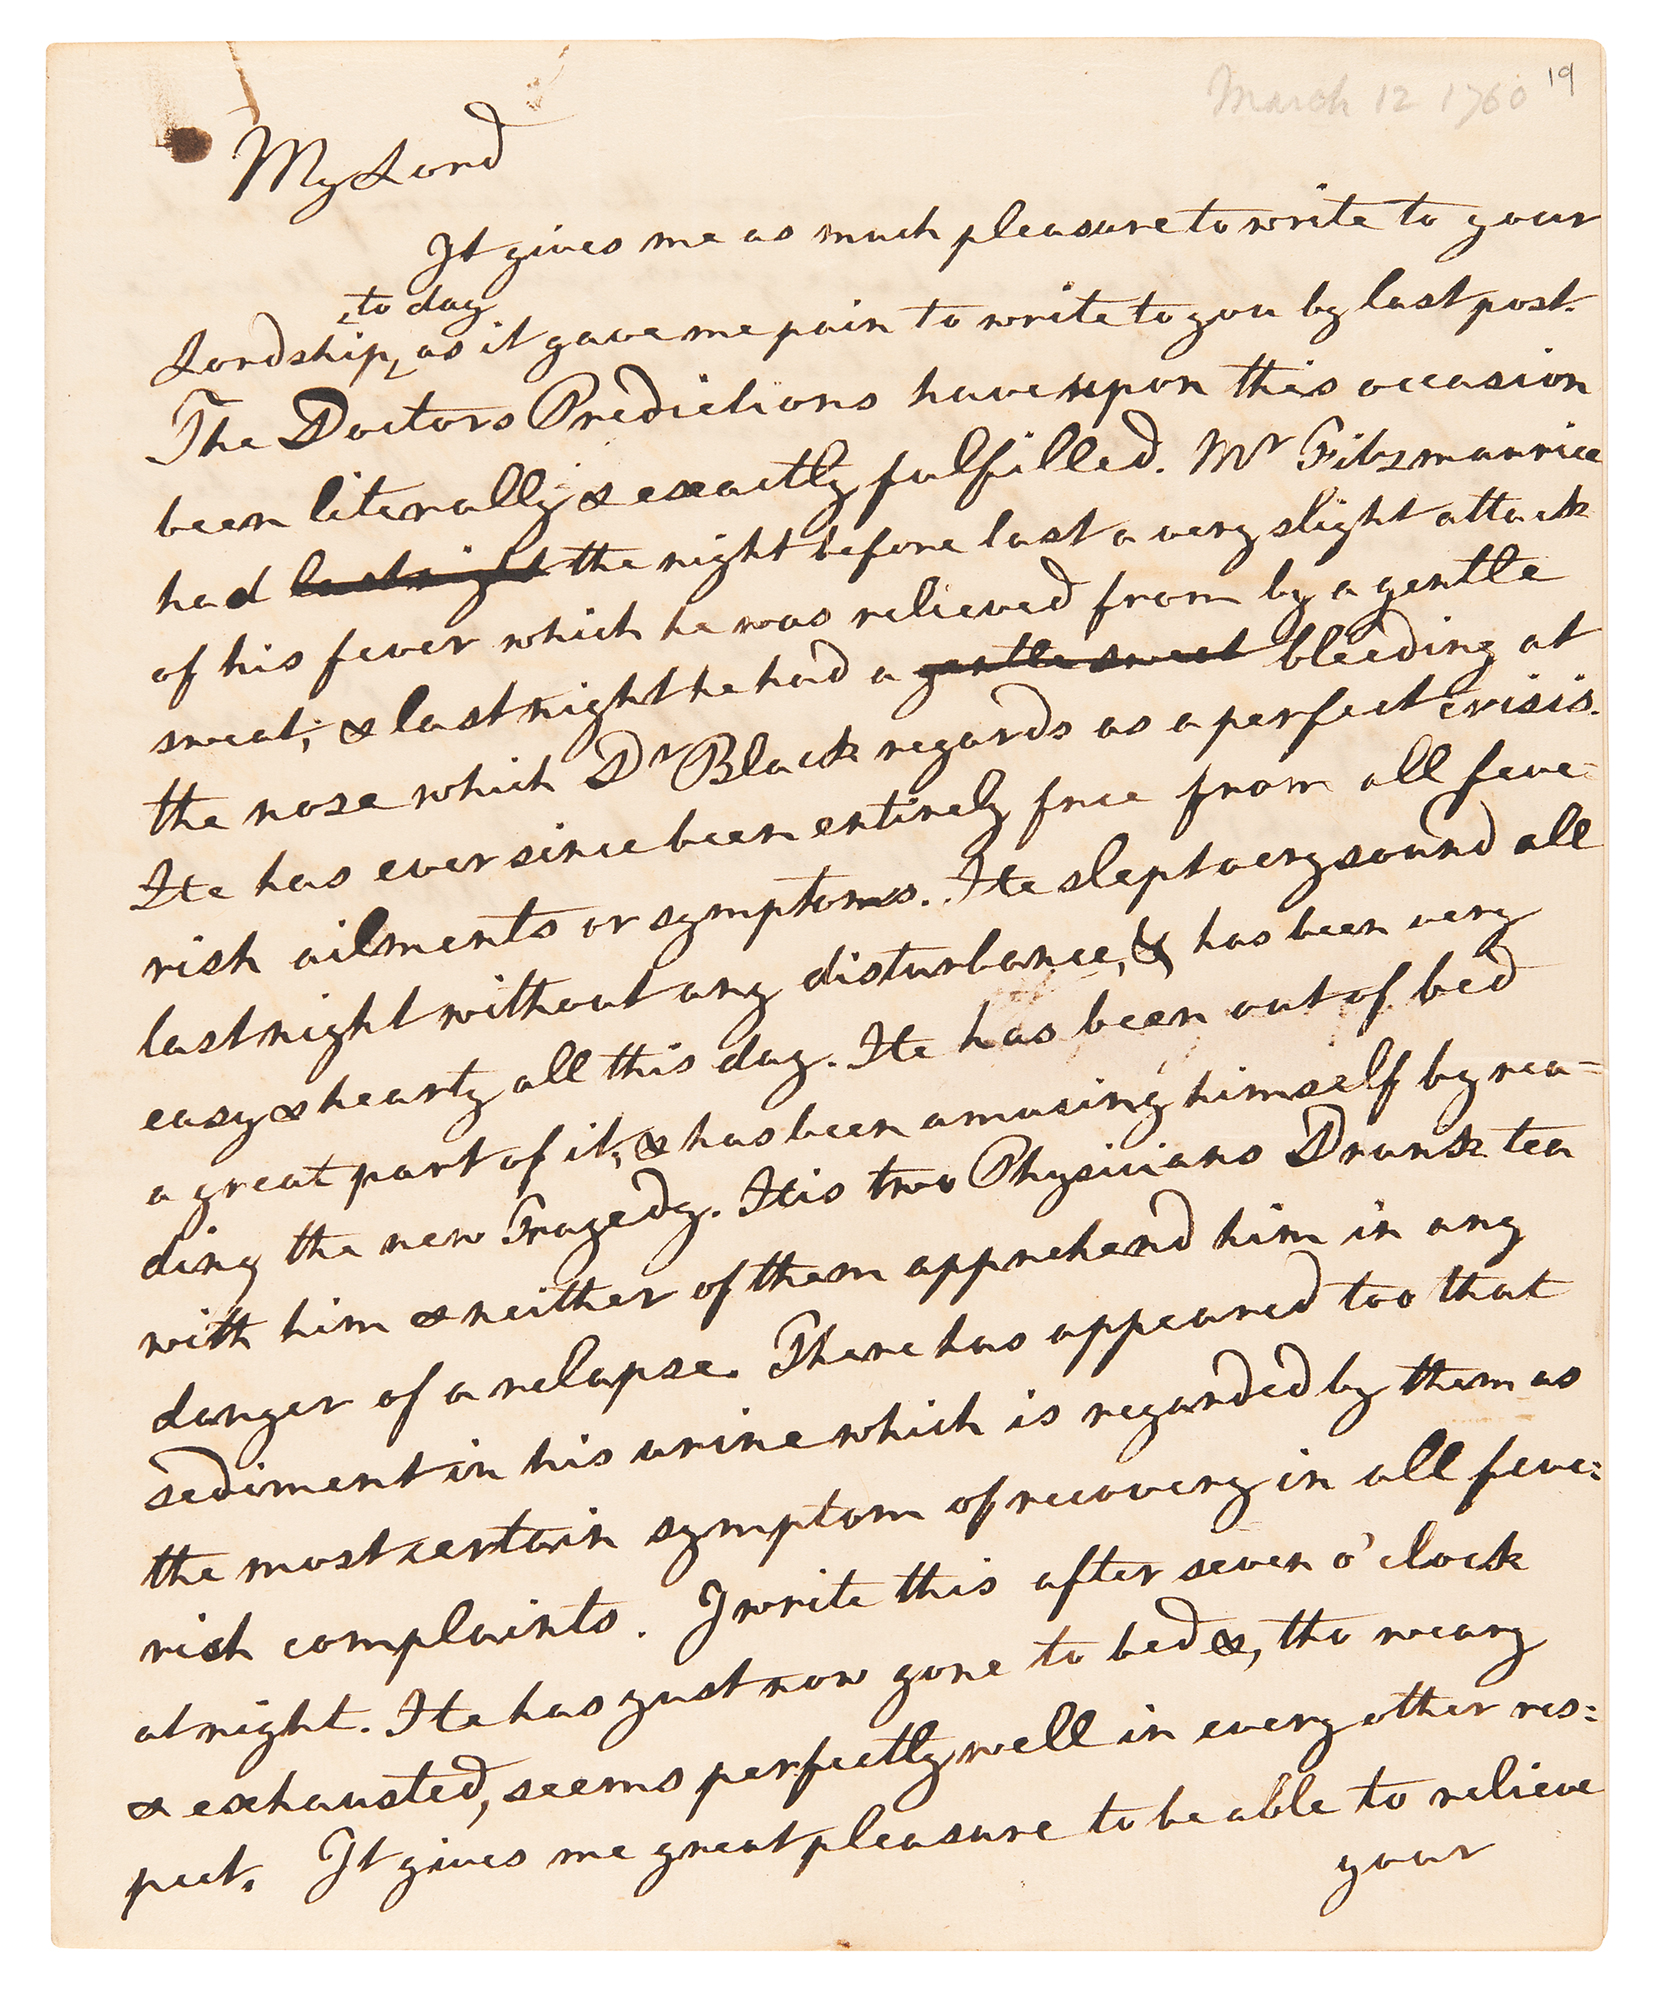 March 12 1760 19
My Lord
It gives me as much pleasure to write to your
to day
Lordship, as it gave me pain to write to you by last post.
The Doctors Predictions have upon this occasion
been literally & exactly fulfilled. Mr Fitzmaurice
had last night the night before last a very slight attack
of his fever which he was relieved from by a gentle
sweat; & last night he had a gentle sweat bleeding at
the nose which Dr Black regards as a perfect crisis.
He has ever since been entirely free from all feve=
rish ailments or symptoms. He slept very sound all
last night without any disturbance, & has been very
easy & hearty all this day. He has been out of bed
a great part of it; & has been amusing himself by rea=
ding the new Tragedy. His two Physicians Drank tea
with him & neither of them apprehend him in any
danger of a relapse. There has appeared too that
sediment in his urine which is regarded by them as
the most certain symptom of recovery in all feve=
rish complaints. I write this after seven o'clock
at night. He has just now gone to bed &, tho weary
& exhausted, seems perfectly well in every other res=
pect. It gives me great pleasure to be able to relieve
your